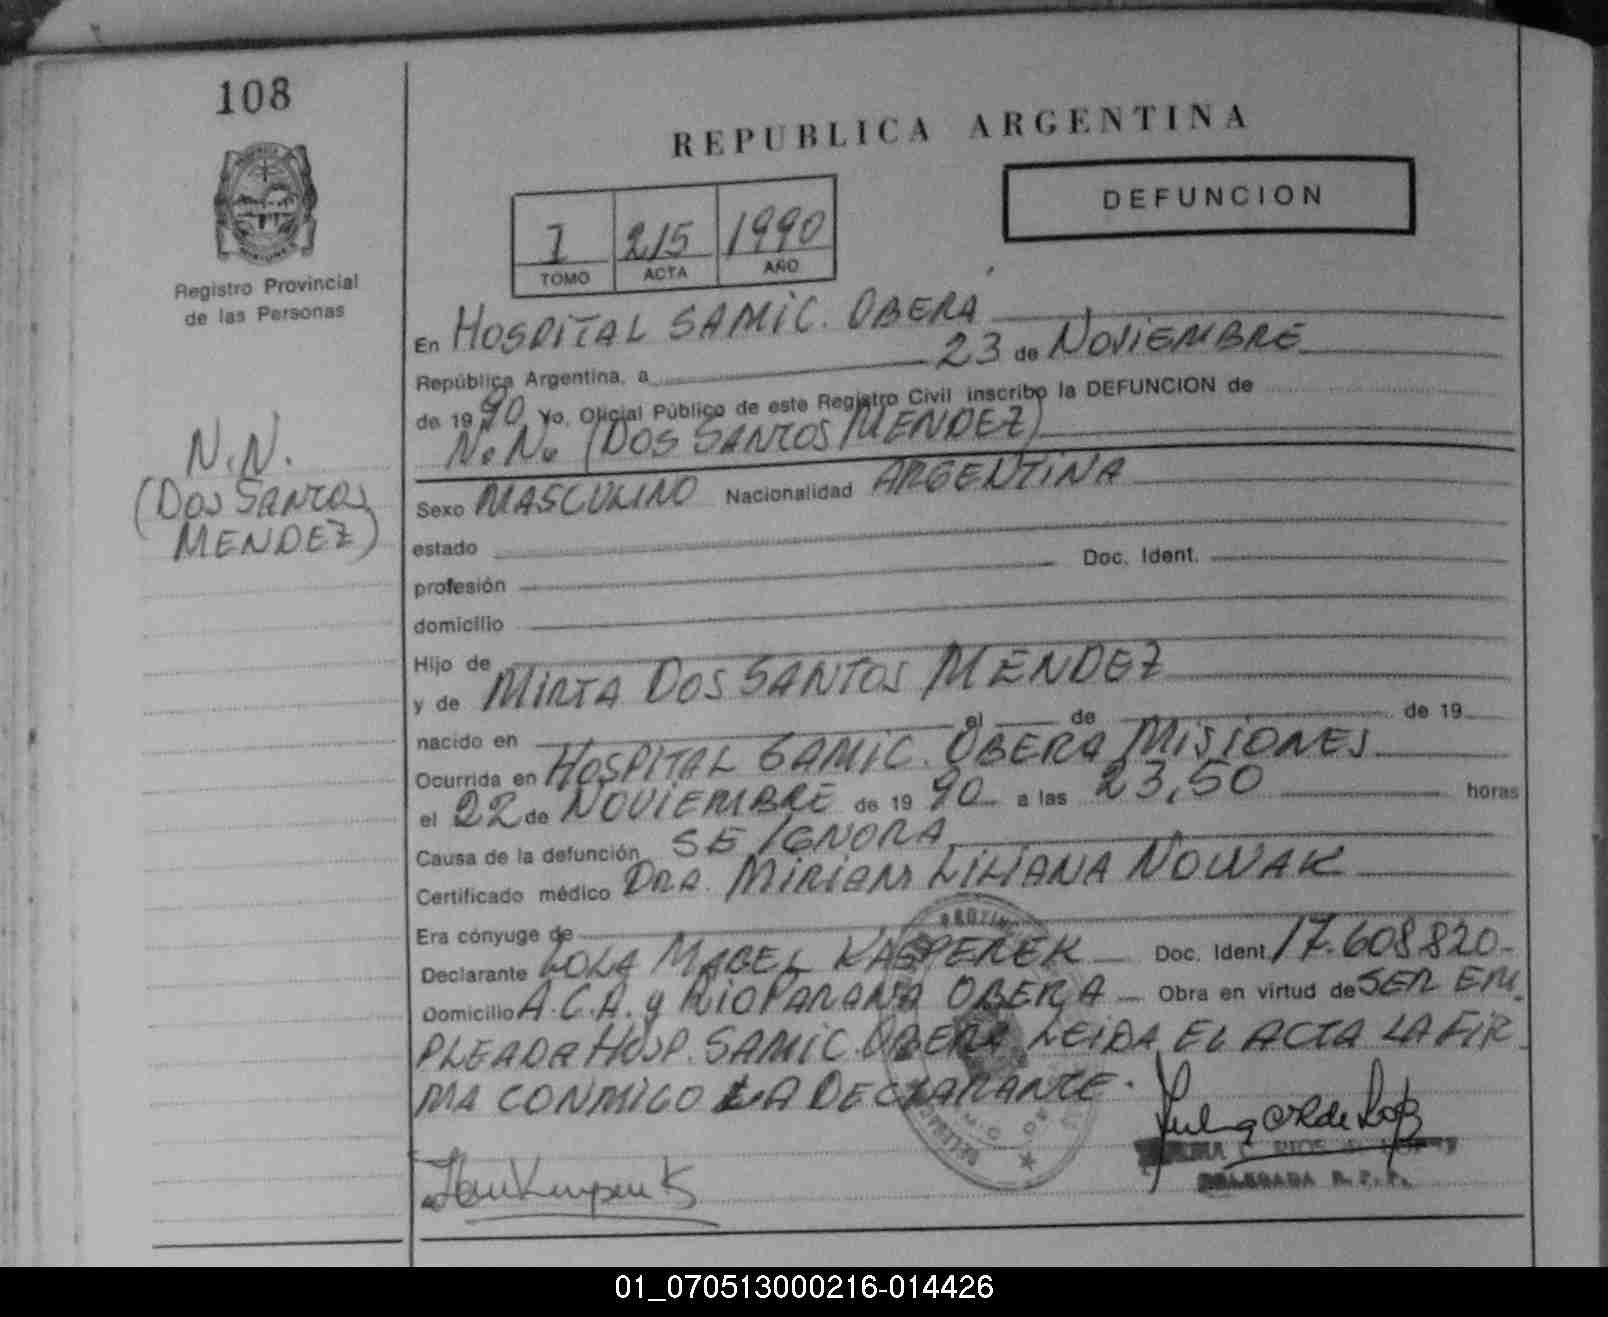 108
Registro Provincial
de las Personas
N.N.
(DOS SANTOS
MENDEZ)
REPUBLICA ARGENTINA
DEFUNCION
1 215 1990
TOMO ACTA AÑO
En HOSPITAL SAMIC. OBERA
República Argentina, a 23 de NOVIEMBRE
de 1990 Yo, Oficial Público de este Registro Civil inscribo la DEFUNCION de
N.N. (DOS SANTOS MENDEZ)
Sexo MASCULINO Nacionalidad ARGENTINA
estado
profesión Doc. Ident.
domicilio
Hijo de
y de MIRTA DOS SANTOS MENDEZ
nacido en el de de 19
Ocurrida en HOSPITAL SAMIC. OBERA MISIONES
el 22 de NOVIEMBRE de 1990 a las 23,50 horas
Causa de la defunción SE IGNORA
Certificado médico DRA. MIRIAM LILIANA NOWAK
Era cónyuge de
Declarante LOLA MABEL KASPEREK Doc. Ident. 17.608.820
Domicilio A.C.A. y RIO PARANA OBERA Obra en virtud de SER EM
PLEADA HOSP. SAMIC. OBERA LEIDA EL ACTA LA FIR
MA CONMIGO LA DECLARANTE.
DELEGADA R.P.P.
01_070513000216-014426